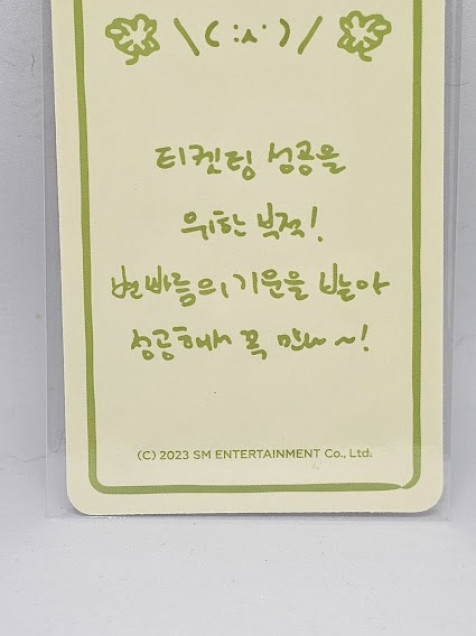 \ ( :ㅅ: ) /
티켓팅 성공을
위한 부적!
변빠름의 기운을 받아
성공해서 꼭 만나~!
(C) 2023 SM ENTERTAINMENT Co., Ltd.